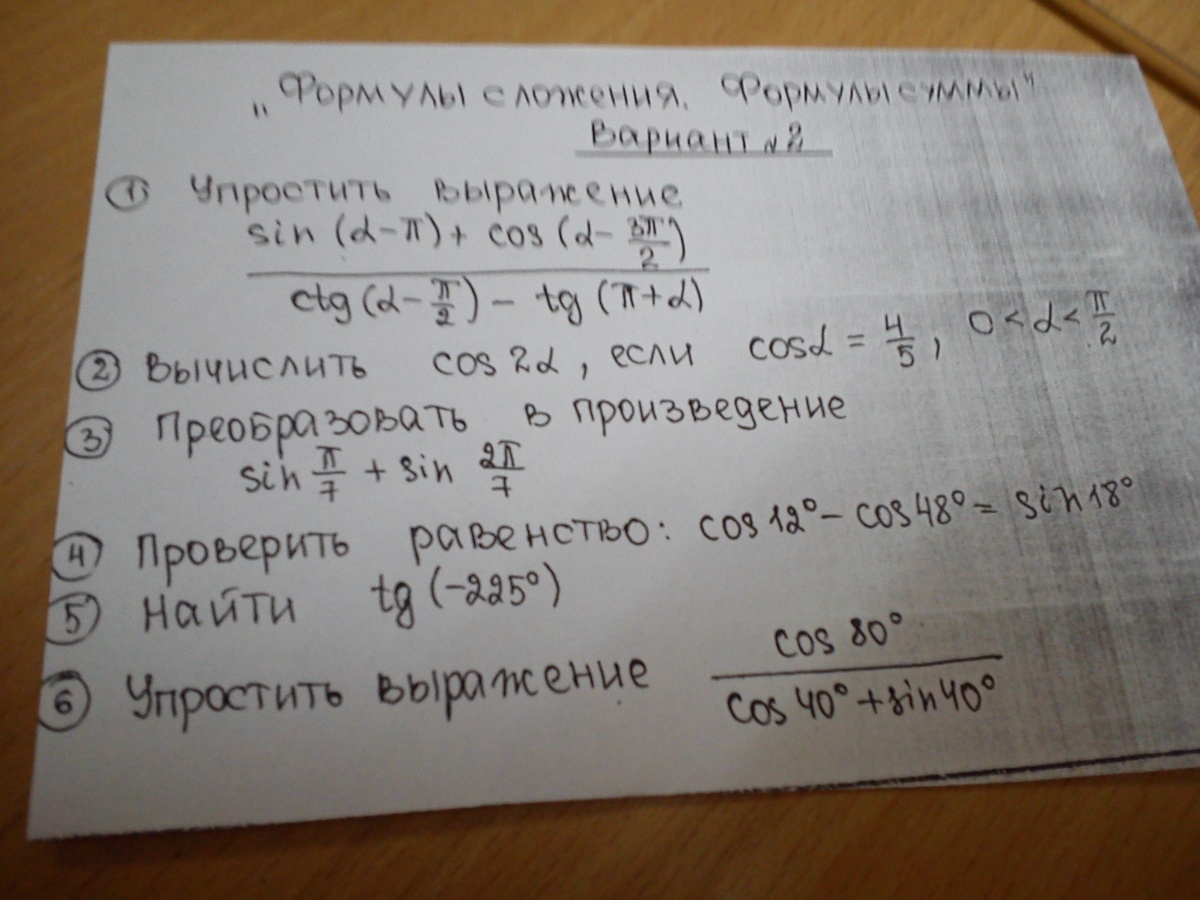 „Формулы сложения. Формулы суммы"
Вариант №2
① Упростить выражение
sin (α-π) + cos (α- 3π/2)
ctg (α- π/2) - tg (π+α)
② Вычислить cos 2α, если cosα = 4/5, 0<α<π/2
③ Преобразовать в произведение
sin π/7 + sin 2π/7
④ Проверить равенство: cos 12° - cos 48° = sin 18°
⑤ Найти tg (-225°)
⑥ Упростить выражение cos 80°
cos 40° + sin 40°